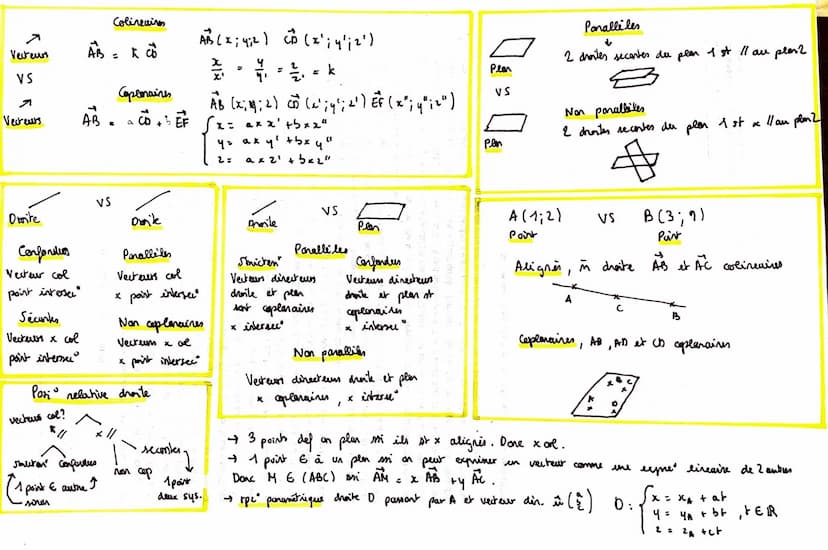 Colinéaires
Vecteurs
VS
Vecteurs
AB = k CD
AB (x ; y ; z) CD (x' ; y' ; z')
x/x' = y/y' = z/z' = k
Coplanaires
AB = a CD + b EF
AB (x ; y ; z) CD (x' ; y' ; z') EF (x" ; y" ; z")
x = a × x' + b × x"
y = a × y' + b × y"
z = a × z' + b × z"
Plan
VS
Plan
Parallèles
2 droites secantes du plan 1 st // au plan 2
Non parallèles
2 droites secantes du plan 1 st × // au plan 2
Droite
VS
Droite
Confondues
Vecteur col
point intersec°
Parallèles
Vecteurs col
× point intersec°
Sécantes
Vecteurs × col
point intersec°
Non coplanaires
Vecteurs × col
× point intersec°
Droite
VS
Plan
Parallèles
Stricten^t
Vecteurs directeurs
droite et plan
sont coplanaires
× intersec°
Confondues
Vecteurs directeurs
droite et plan st
coplanaires
× intersec°
Non parallèles
Vecteurs directeurs droite et plan
× coplanaires, × intersec°
A (1 ; 2) VS B (3 ; 9)
Point
Point
Alignés, m̄ droite AB et AC colineaires
A
C
B
Coplanaires, AB, AD et CD coplanaires
B C
A
D
Posi° relative droite
vecteurs col?
//
× //
stricten^t
confondues
non cop
secantes
1 point ∈ autre
sinon
1 point
deux sys.
→ 3 points def un plan ssi ils st × alignés. Donc × col.
→ 1 point ∈ à un plan ssi on peut exprimer un vecteur comme une expres° lineaire de 2 autres
Donc M ∈ (ABC) ssi AM = x AB + y AC.
→ rpz° paramétrique droite D passant par A et vecteur dir. u (a b c)
D : x = xA + at
y = yA + bt , t ∈ ℝ
z = zA + ct